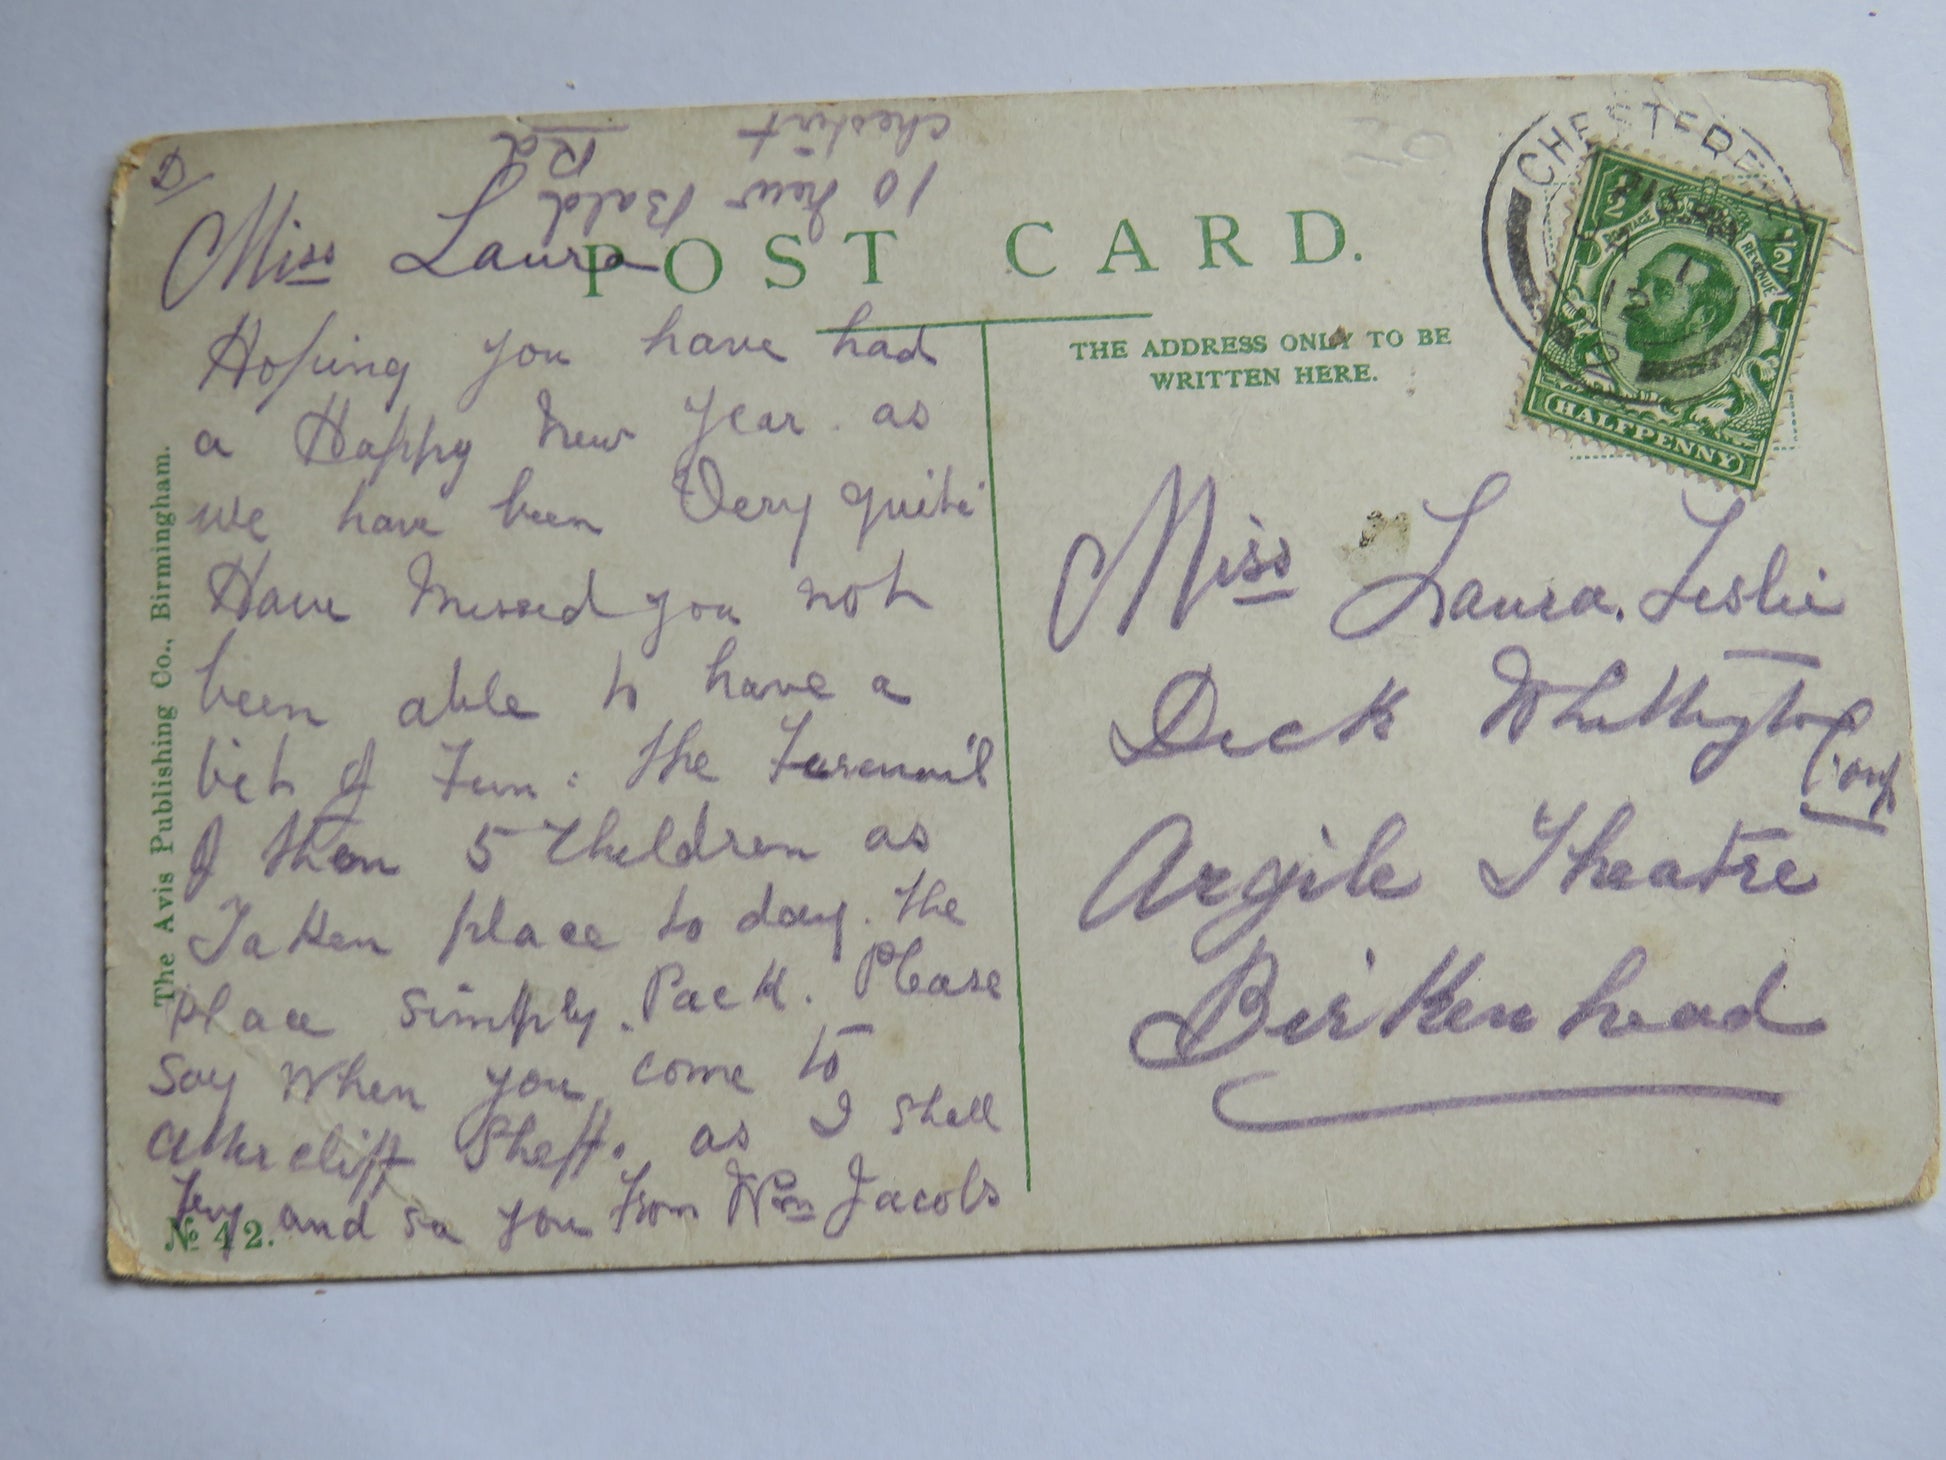 10 New Bald
Rd
Chesterf
D/
Miss Laura
POST CARD.
Hoping you have had
a Happy New Year. as
we have been Very quite
Have Missed you not
been able to have a
bit of Fun: the Funeral
of them 5 Children as
Taken place to day. the
place simply. Pack. Please
say When you come to
Sheff. as I shall
Try and se you From Wm Jacobs
The Avis Publishing Co., Birmingham.
No 42.
THE ADDRESS ONLY TO BE
WRITTEN HERE.
CHESTERFIELD
12
1/2 1/2
POSTAGE REVENUE
HALFPENNY
Miss Laura. Leslie
Dick Whittington
Comp
Argile Theatre
Birkenhead